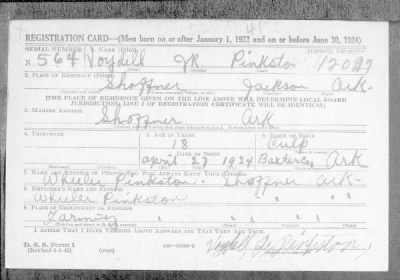 REGISTRATION CARD—(Men born on or after January 1, 1922 and on or before June 30, 1924)
SERIAL NUMBER 1. NAME (Print) ORDER NUMBER
N 564 Voydell JR. Pinkston 12097
(First) (Middle) (Last)
2. PLACE OF RESIDENCE (Print)
Shoffner Jackson Ark-
[THE PLACE OF RESIDENCE GIVEN ON THE LINE ABOVE WILL DETERMINE LOCAL BOARD
JURISDICTION; LINE 2 OF REGISTRATION CERTIFICATE WILL BE IDENTICAL]
3. MAILING ADDRESS
Shoffner Ark
4. TELEPHONE 5. AGE IN YEARS 6. PLACE OF BIRTH
18 Culp
DATE OF BIRTH
April 27 1924 Baxter Co. Ark
7. NAME AND ADDRESS OF PERSON WHO WILL ALWAYS KNOW YOUR ADDRESS
Wheeler Pinkston. Shoffner Ark-
8. EMPLOYER'S NAME AND ADDRESS
Wheeler Pinkston " " "
9. PLACE OF EMPLOYMENT OR BUSINESS
Farming " " "
I AFFIRM THAT I HAVE VERIFIED ABOVE ANSWERS AND THAT THEY ARE TRUE.
D. S. S. Form 1
(over)
Voydell Jr. Pinkston